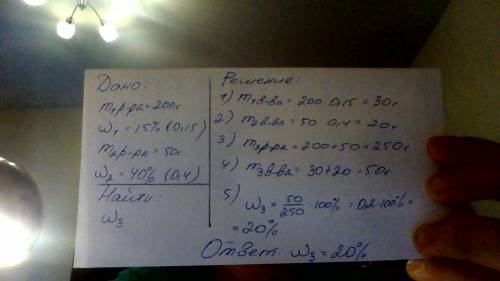 Дано:
m₁р-ра=200г
ω₁=15% (0,15)
m₂р-ра=50г
ω₂=40% (0,4)
Найти:
ω₃
Решение:
1) m₁в-ва=200·0,15=30г
2) m₂в-ва=50·0,4=20г
3) m₃р-ра=200+50=250г
4) m₃в-ва=30+20=50г
5) ω₃=50/250·100%=0,2·100%=
=20%
Ответ: ω₃=20%